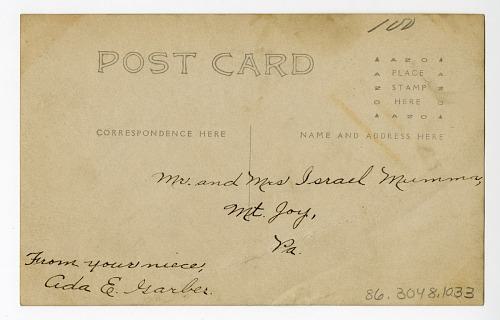 100
POST CARD
▲ A Z O ▲
PLACE
STAMP
HERE
▲ A Z O ▲
CORRESPONDENCE HERE
NAME AND ADDRESS HERE
Mr. and Mrs Israel Mumma,
Mt. Joy,
Pa.
From your niece,
Ada E. Garber.
86.3048.1033